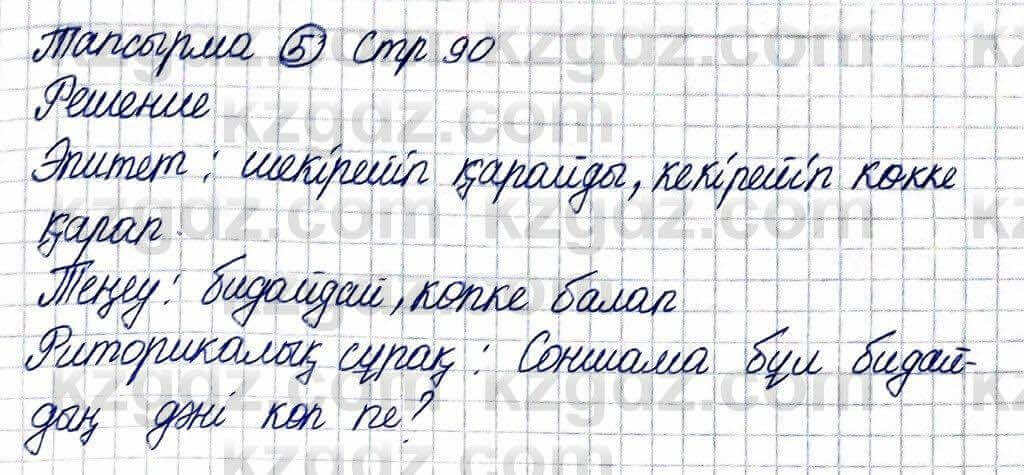 Тапсырма ⑤ Стр 90
Решение
Эпитет: шекірейіп қарайды, кекірейіп көкке
қарап
Теңеу: бидайдай, көпке балап
Риторикалық сұрақ: Соншама бұл бидай-
дың дәні көп пе?